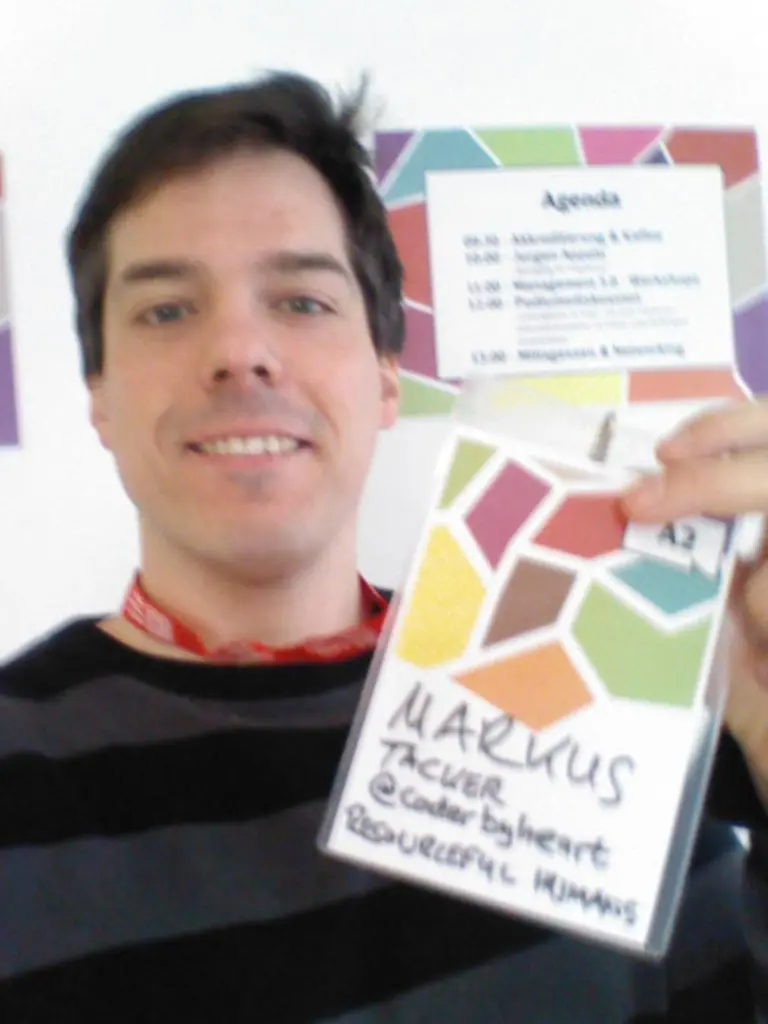 Agenda
09:30 - Akkreditierung & Kaffee
10:00 - Jurgen Appelo
11:00 - Management 3.0 - Workshops
12:00 - Podiumsdiskussion
13:00 - Mittagessen & Networking
A2
MARKUS
TACKER
@coderbyheart
RESOURCEFUL HUMANS